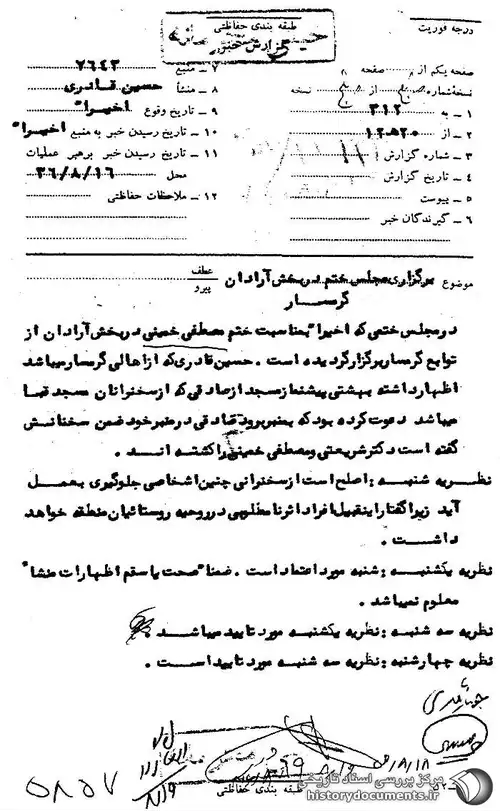 درجه فوریت
طبقه بندی حفاظتی
گزارش خبر
صفحه یکم از صفحه
نسخه شماره از نسخه
۱ ـ به ۳۱۲
۲ ـ از ۲۰ ﻫ ۱۲
۳ ـ شماره گزارش
۴ ـ تاریخ گزارش
۵ ـ پیوست
۶ ـ گیرندگان خبر
۷ ـ منبع ۷۶۴۳
۸ ـ منشأ حسین قادری
۹ ـ تاریخ وقوع اخیرا"
۱۰ ـ تاریخ رسیدن خبر به منبع اخیرا"
۱۱ ـ تاریخ رسیدن خبر برهبر عملیات
محل ۳۶/۸/۱۶
۱۲ ـ ملاحظات حفاظتی
موضوع برگزاری مجلس ختم در بخش آرادان
عطف
پیرو
گرمسار
در مجلس ختمی که اخیرا" بمناسبت ختم مصطفی خمینی در بخش آرادان از
توابع گرمسار برگزار گردیده است . حسین قادری که از اهالی گرمسار میباشد
اظهار داشته بهشتی پیشنماز مسجد از صادقی که از سخنرانان مسجد قبا
میباشد دعوت کرده بود که بمنبر برود صادقی در منبر خود ضمن سخنانش
گفته است دکتر شریعتی و مصطفی خمینی را کشته اند .
نظریه شنبه : اصلح است از سخنرانی چنین اشخاصی جلوگیری بعمل
آید زیرا گفتار اینقبیل افراد اثر نامطلوبی در روحیه روستائیان منطقه خواهد
داشت .
نظریه یکشنبه : شنبه مورد اعتماد است . ضمنا" صحت یا سقم اظهارات منشا"
معلوم نمیباشد .
نظریه سه شنبه : نظریه یکشنبه مورد تایید میباشد .
نظریه چهارشنبه : نظریه سه شنبه مورد تایید است .
طبقه بندی حفاظتی
۵۸۵۷
مرکز بررسی اسناد تاریخی
historydocuments.ir